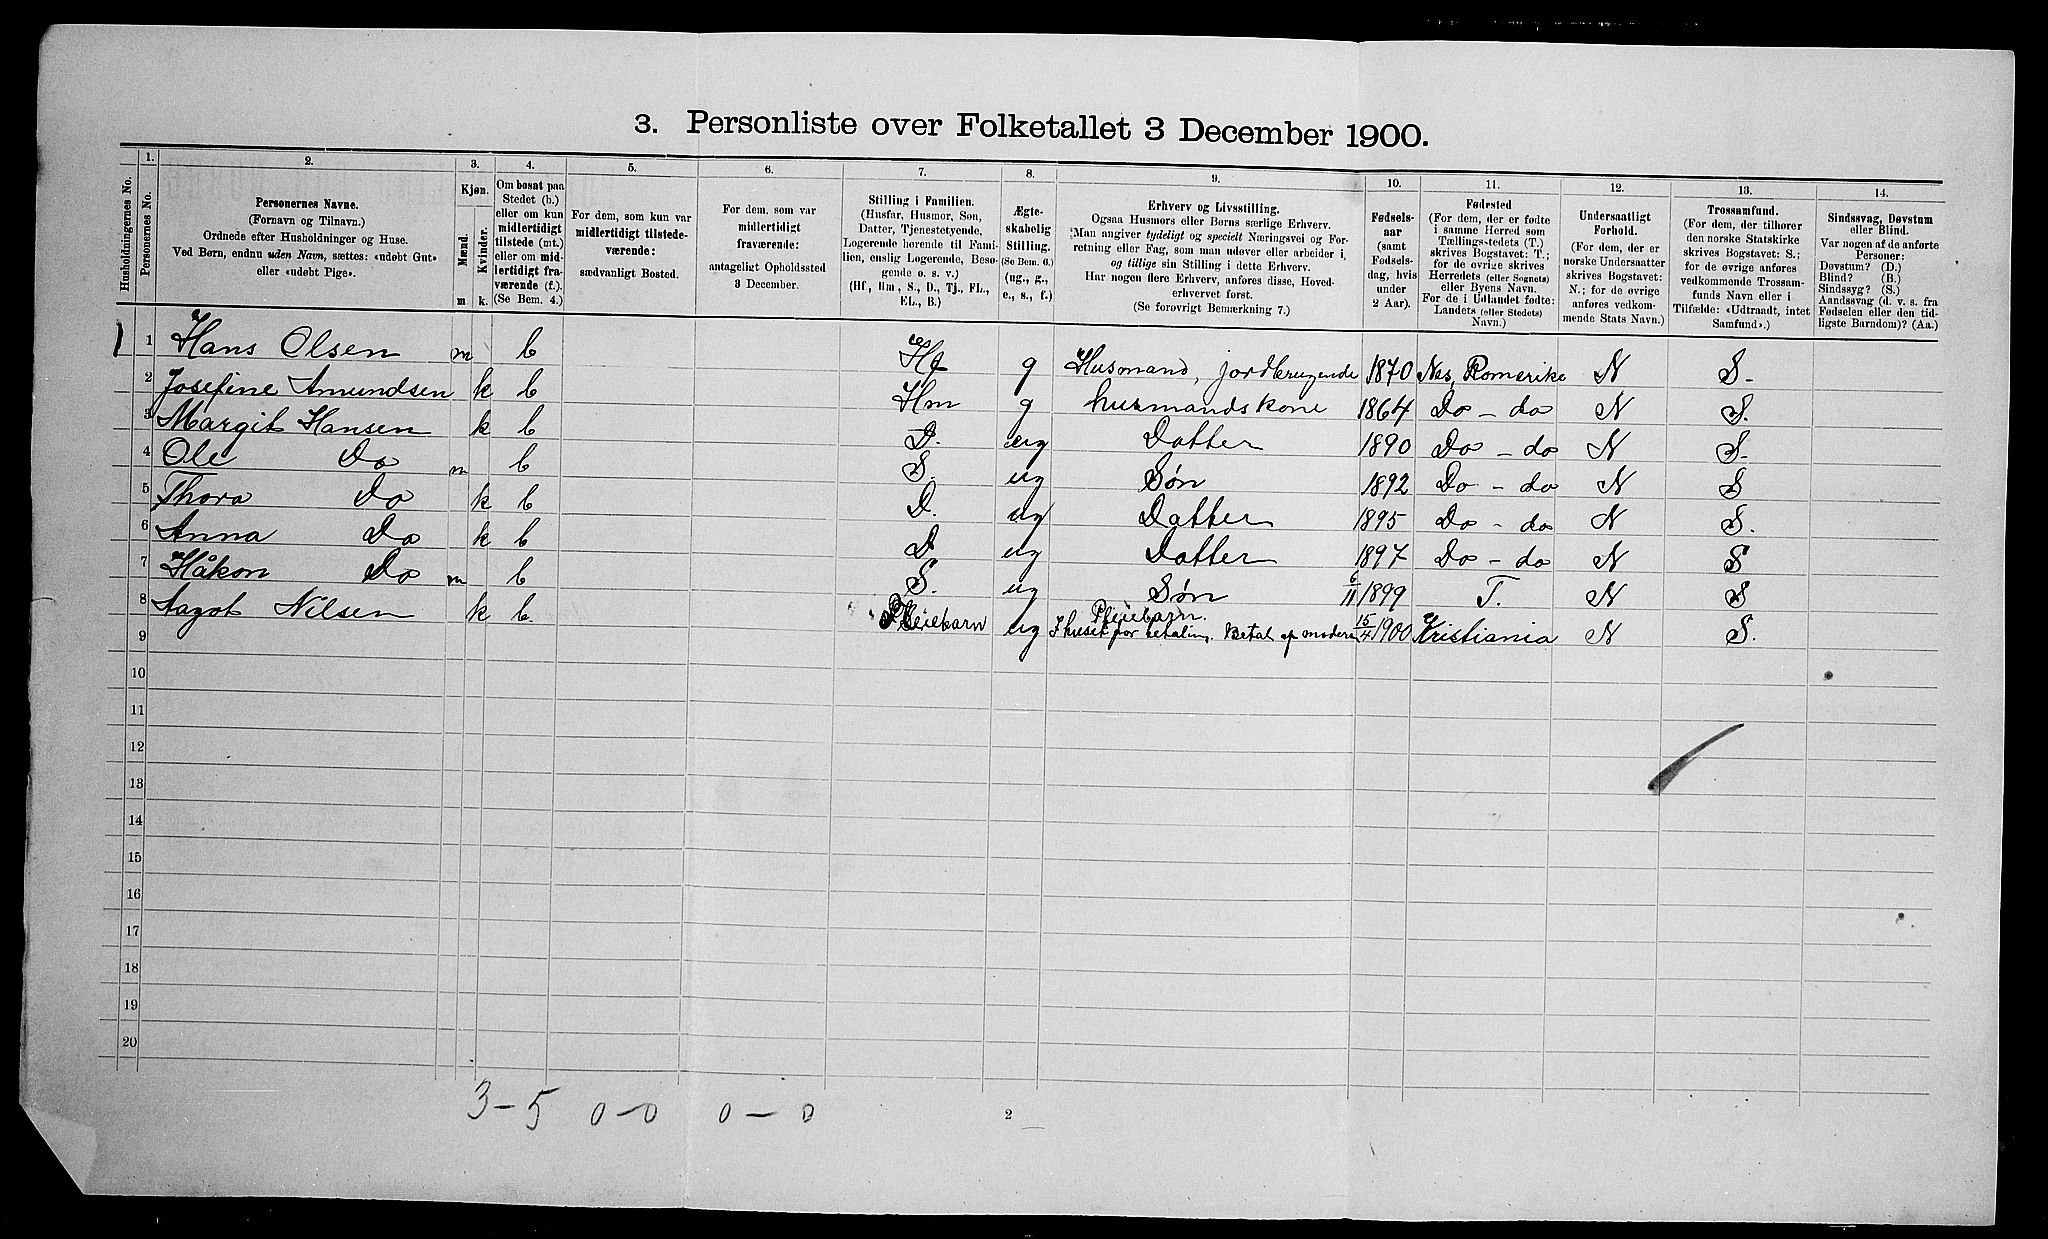 3. Personliste over Folketallet 3 December 1900.
1. 2. 3. 4. 5. 6. 7. 8. 9. 10. 11. 12. 13. 14.
Husholdningernes No.
Personernes No.
Personernes Navne.
(Fornavn og Tilnavn.)
Ordnede efter Husholdninger og Huse.
Ved Børn, endnu uden Navn, sættes: «udøbt Gut»
eller «udøbt Pige».
Kjøn.
Mænd.
Kvinder.
m k.
Om bosat paa
Stedet (b.)
eller om kun
midlertidigt
tilstede (mt.)
eller om mid-
lertidigt fra-
værende (f.).
(Se Bem. 4.)
For dem, som kun var
midlertidigt tilstede-
værende:
sædvanligt Bosted.
For dem, som var
midlertidigt
fraværende:
antageligt Opholdssted
3 December.
Stilling i Familien.
(Husfar, Husmor, Søn,
Datter, Tjenestetyende,
Logerende hørende til Fami-
lien, enslig Logerende, Besø-
gende o. s. v.)
(Hf, Hm, S., D., Tj., FL.,
EL., B.)
Ægte-
skabelig
Stilling.
(Se Bem. 6.)
(ug., g.,
e., s., f.)
Erhverv og Livsstilling.
Ogsaa Husmors eller Børns særlige Erhverv.
Man angiver tydeligt og specielt Næringsvei og For-
retning eller Fag, som man udøver eller arbeider i,
og tillige sin Stilling i dette Erhverv.
Har nogen flere Erhverv, anføres disse, Hoved-
erhvervet først.
(Se forøvrigt Bemærkning 7.)
Fødsels-
aar
(samt
Fødsels-
dag, hvis
under
2 Aar).
Fødested
(For dem, der er fødte
i samme Herred som
Tællingsstedets (T.)
skrives Bogstavet: T.;
for de øvrige skrives
Herredets (eller Sognets)
eller Byens Navn.
For de i Udlandet fødte:
Landets (eller Stedets)
Navn.)
Undersaatligt
Forhold.
(For dem, der er
norske Undersaatter
skrives Bogstavet:
N.; for de øvrige
anføres vedkom-
mende Stats Navn.)
Trossamfund.
(For dem, der tilhører
den norske Statskirke
skrives Bogstavet: S.;
for de øvrige anføres
vedkommende Trossam-
funds Navn eller i
Tilfælde: «Udtraadt, intet
Samfund».)
Sindssvag, Døvstum
eller Blind.
Var nogen af de anførte
Personer:
Døvstum? (D.)
Blind? (B.)
Sindssyg? (S.)
Aandssvag (d. v. s. fra
Fødselen eller den tid-
ligste Barndom)? (Aa.)
1 1 Hans Olsen m b Hf g Husmand, jordbrugende 1870 Nes, Romerike N S.
2 Josefine Amundsen k b Hm g husmandskone 1864 Do - do N S.
3 Margit Hansen k b D. ug Datter 1890 Do - do N S.
4 Ole Do m b S. ug Søn 1892 Do - do N S
5 Thora Do k b D. ug Datter 1895 Do - do N S.
6 Anna Do k b D ug Datter 1897 Do - do N S
7 Håkon Do m b S. ug Søn 6/11 1899 T. N S
8 Aagot Nilsen k b. Pleiebarn ug Pleiebarn. I huset for betaling. Betal af moderen 15/4 1900 Kristiania N S.
9
10
11
12
13
14
15
16
17
18
19
20
3-5 0-0 0-0
2